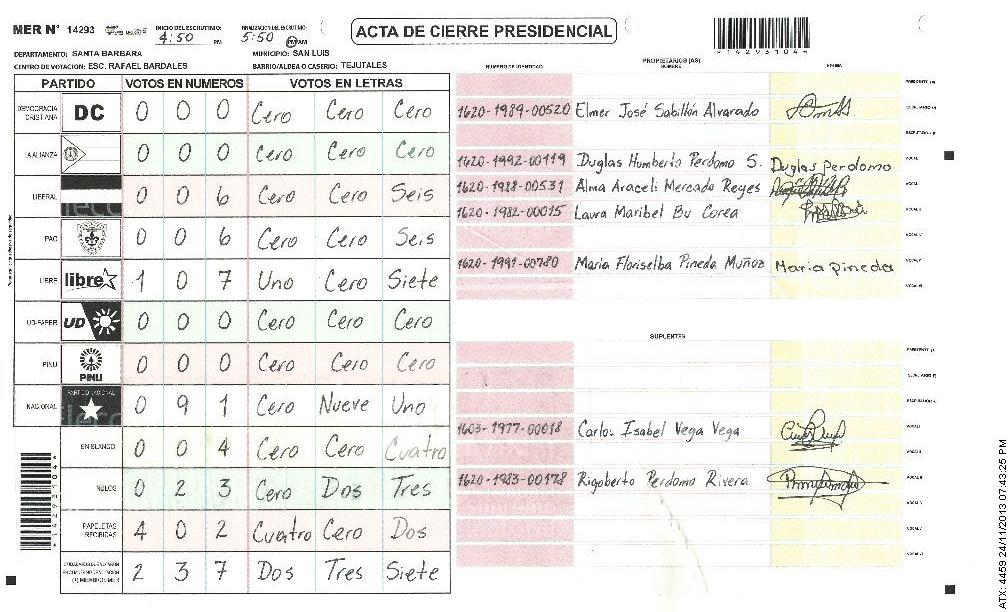 MER N° 14293 INICIO DEL ESCRUTINIO: 4:50 PM FINALIZACION DEL ESCRUTINIO: 5:50 PM AM
ACTA DE CIERRE PRESIDENCIAL
DEPARTAMENTO: SANTA BARBARA MUNICIPIO: SAN LUIS
CENTRO DE VOTACION: ESC. RAFAEL BARDALES BARRIO/ALDEA O CASERIO: TEJUTALES
PARTIDO VOTOS EN NUMEROS VOTOS EN LETRAS
DEMOCRACIA CRISTIANA DC 0 0 0 Cero Cero Cero
LA ALIANZA 0 0 0 Cero Cero Cero
LIBERAL 0 0 6 Cero Cero Seis
PAC 0 0 6 Cero Cero Seis
LIBRE libre 1 0 7 Uno Cero Siete
UD-FAPER UD 0 0 0 Cero Cero Cero
PINU PINU 0 0 0 Cero Cero Cero
NACIONAL PARTIDO NACIONAL 0 9 1 Cero Nueve Uno
EN BLANCO 0 0 4 Cero Cero Cuatro
NULOS 0 2 3 Cero Dos Tres
PAPELETAS RECIBIDAS 4 0 2 Cuatro Cero Dos
2 3 7 Dos Tres Siete
*14293104*
PROPIETARIOS (AS)
NUMERO DE IDENTIDAD NOMBRE FIRMA
1620-1989-00520 Elmer José Sabillón Alvarado
1620-1992-00119 Duglas Humberto Perdomo S. Duglas Perdomo
1620-1988-00531 Alma Araceli Mercado Reyes
1620-1982-00015 Laura Maribel Bu Corea
1620-1991-00780 Maria Floriselba Pineda Muñoz Maria Pineda
SUPLENTES
1603-1977-00018 Carlos Isabel Vega Vega
1620-1983-00178 Rigoberto Perdomo Rivera
ATX: 4459 24/11/2013 07:43:25 PM